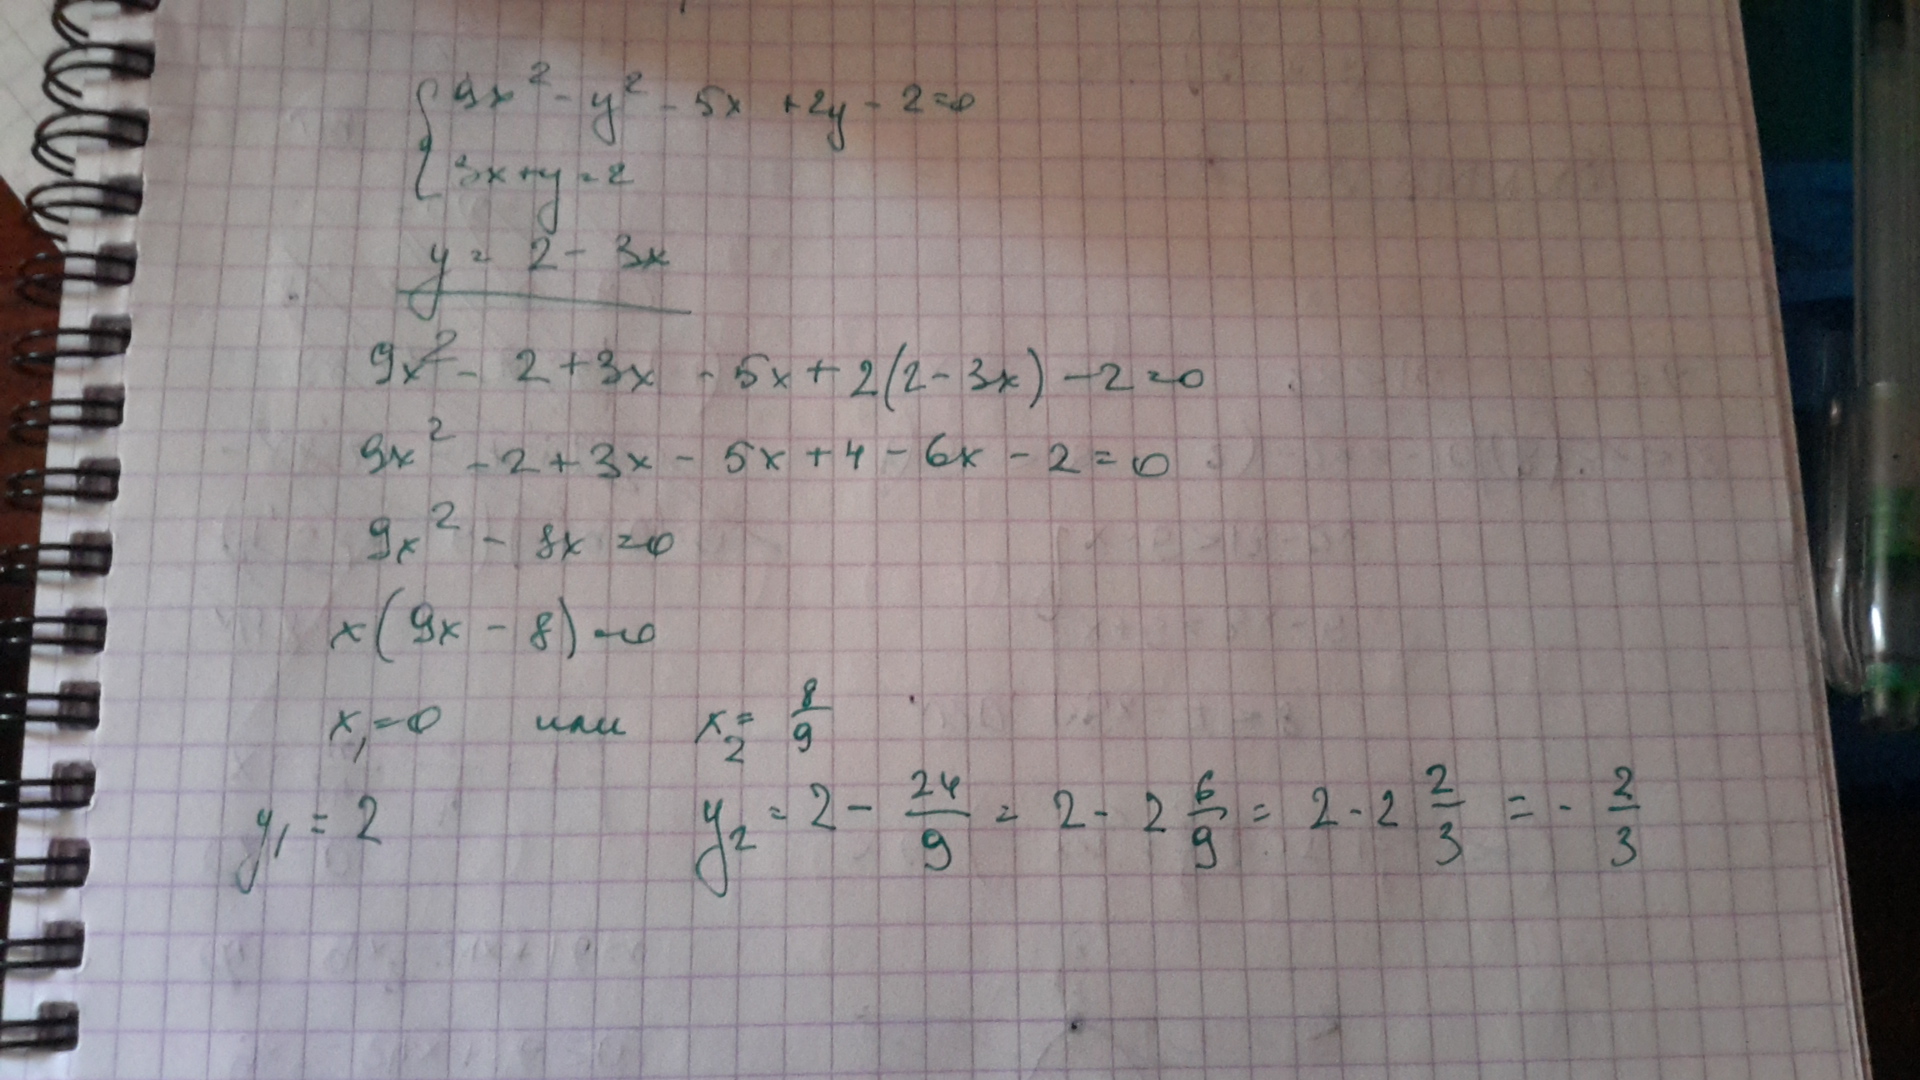 9x² - y² - 5x + 2y - 2 = 0
3x + y = 2
y = 2 - 3x
9x² - 2 + 3x - 5x + 2(2 - 3x) - 2 = 0
9x² - 2 + 3x - 5x + 4 - 6x - 2 = 0
9x² - 8x = 0
x(9x - 8) = 0
x₁ = 0 или x₂ = 8/9
y₁ = 2 y₂ = 2 - 24/9 = 2 - 2 6/9 = 2 - 2 2/3 = - 2/3